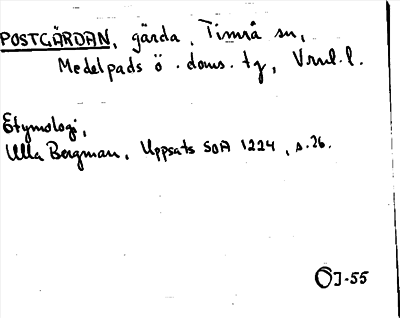 POSTGÄRDAN, gärda, Timrå sn,
Medelpads ö. doms. tg, Vrnl. l.
Etymologi,
Ulla Bergman, Uppsats SOA 1224, s. 26.
OJ-55